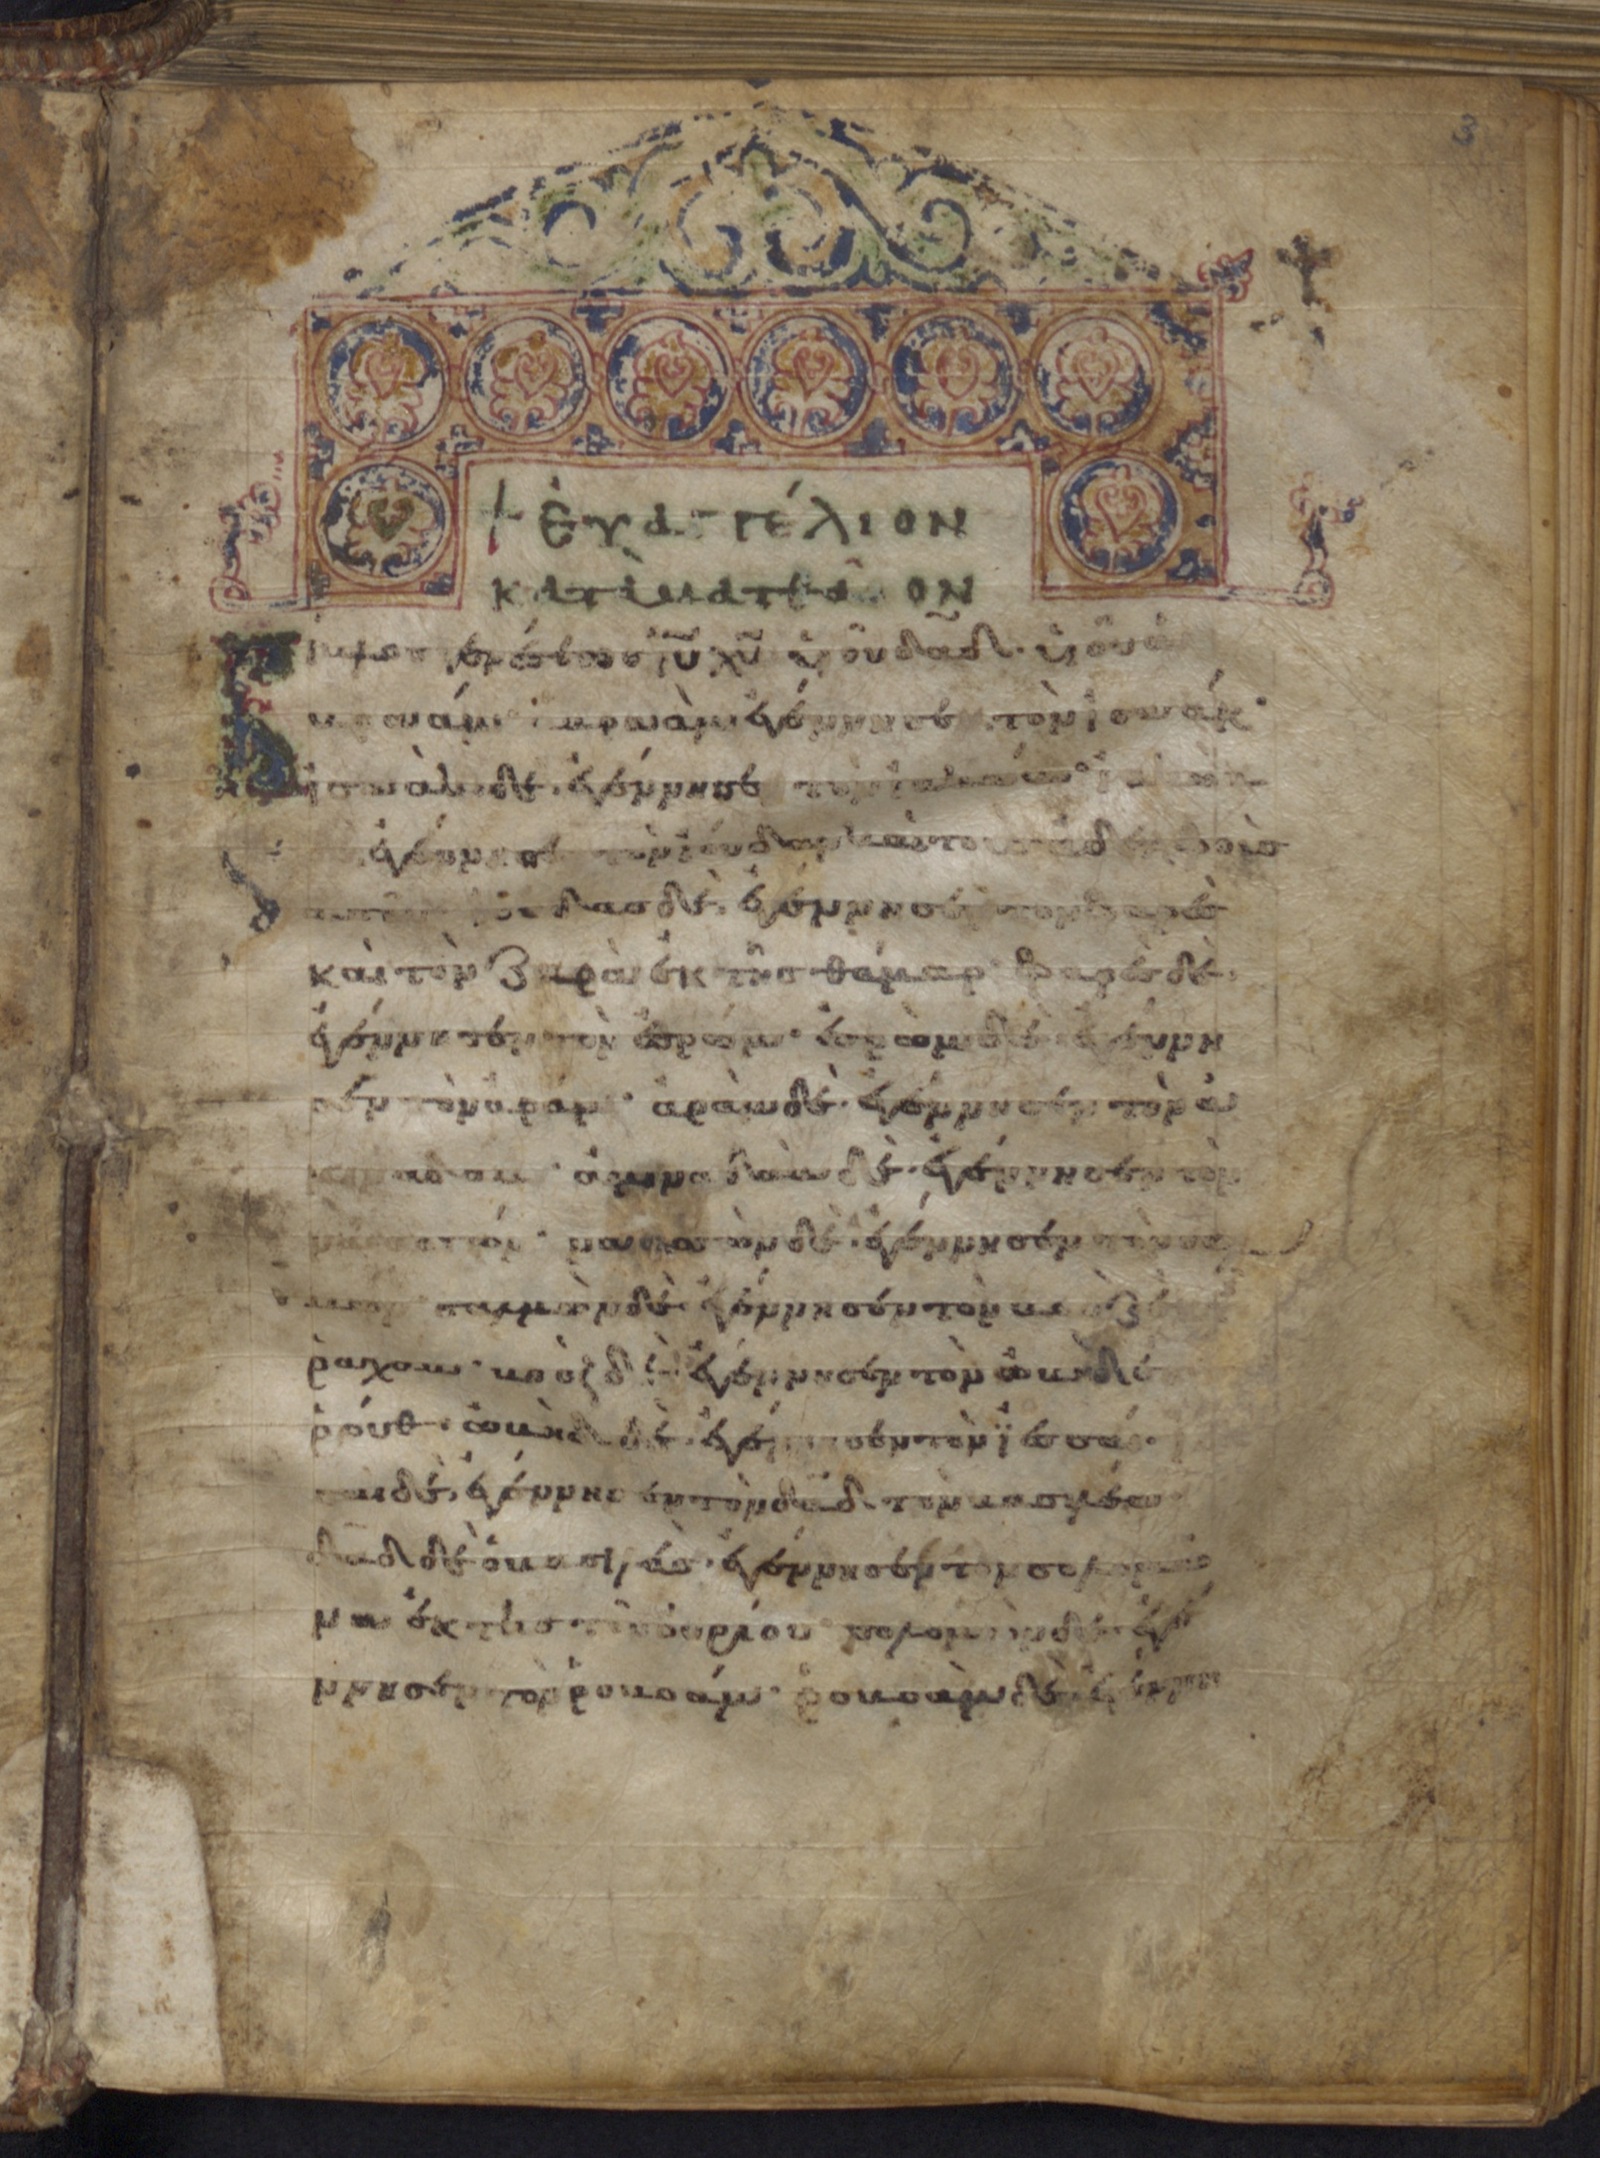 3
ἐυαγγέλιον
κατὰ ματθαῖον
Βίβλος γενέσεως ἰῡ χῡ ὑιοῦ δᾱδ· ὑιοῦ ἀ
βραάμ· ἀβραὰμ ἐγέννησε τὸν ἰσαάκ·
ἰσαὰκ δὲ ἐγέννησε τὸν ἰακώβ· ἰακὼβ
δὲ ἐγέννησε τὸν ἰούδαν καὶ τοὺς ἀδελφοὺς
αὐτοῦ· ἰούδας δὲ ἐγέννησεν τὸν φαρὲς
καὶ τὸν ζαρὰ ἐκ τῆς θάμαρ· φαρὲς δὲ
ἐγέννησεν τὸν ἐσρώμ· ἐσρὼμ δὲ ἐγέννη
σεν τὸν ἀράμ· ἀρὰμ δὲ ἐγέννησεν τὸν ἀ
μιναδάμ· ἀμιναδὰμ δὲ ἐγέννησεν τὸν
ναασσών· ναασσὼν δὲ ἐγέννησεν τὸν σαλ
μών· σαλμὼν δὲ ἐγέννησεν τὸν βοὸζ ἐκ
ραχάβ· βοὸζ δὲ ἐγέννησεν τὸν ὠβὴδ ἐκ
ρούθ· ὠβὴδ δὲ ἐγέννησεν τὸν ἰεσσαί·
δὲ ἐγέννησεν τὸν δᾱδ τὸν βασιλέα·
δᾱδ δὲ ὁ βασιλεὺς ἐγέννησεν τὸν σολομῶ
να ἐκ τῆς τοῦ οὐρίου· σολομὼν δὲ ἐγέ
ννησεν τὸν ῥοβοάμ· ῥοβοὰμ δὲ ἐγέννη